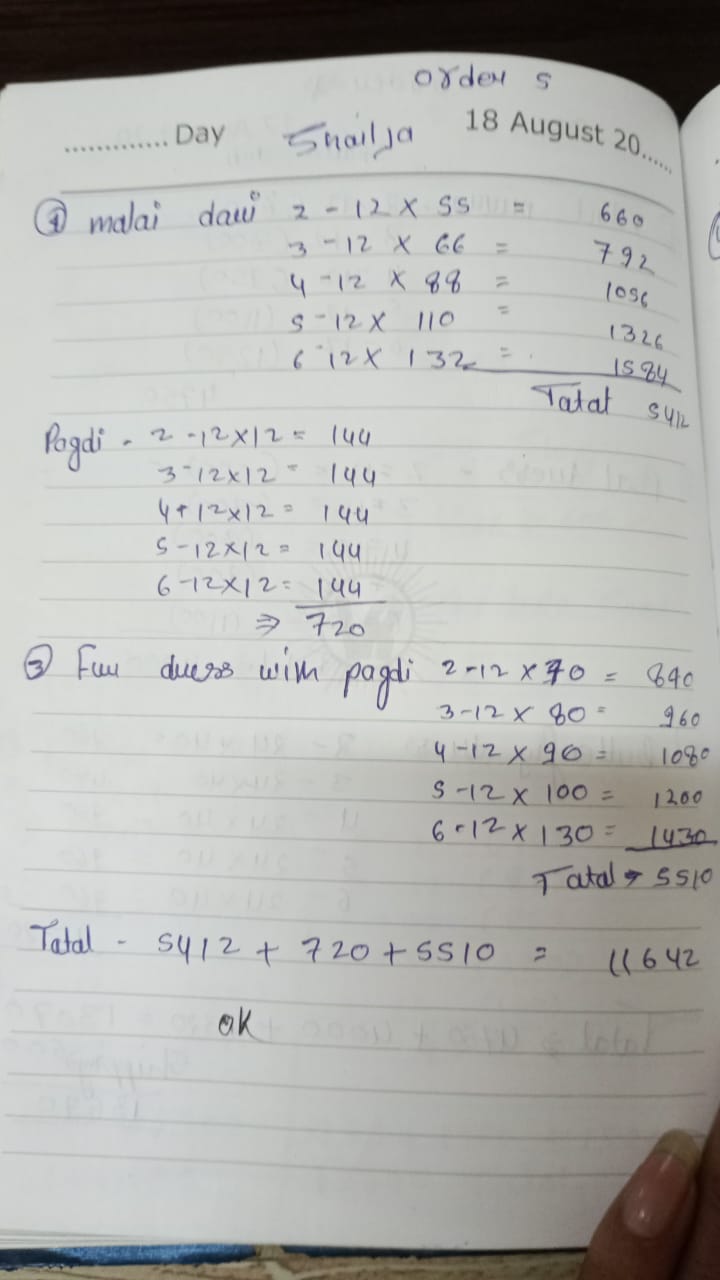 order 5
............. Day Shailja 18 August 20......
① malai dawi 2 - 12 X 55 = 660
3 - 12 X 66 = 792
4 - 12 X 88 = 1056
5 - 12 X 110 = 1326
6 - 12 X 132 = 1584
Tatal 5412
Pagdi - 2 - 12 X 12 = 144
3 - 12 X 12 = 144
4 + 12 X 12 = 144
5 - 12 X 12 = 144
6 - 12 X 12 = 144
⇒ 720
③ Fuu duess with pagdi 2 - 12 X 70 = 840
3 - 12 X 80 = 960
4 - 12 X 90 = 1080
5 - 12 X 100 = 1200
6 - 12 X 130 = 1430
Tatal → 5510
Tatal - 5412 + 720 + 5510 = 11642
ok